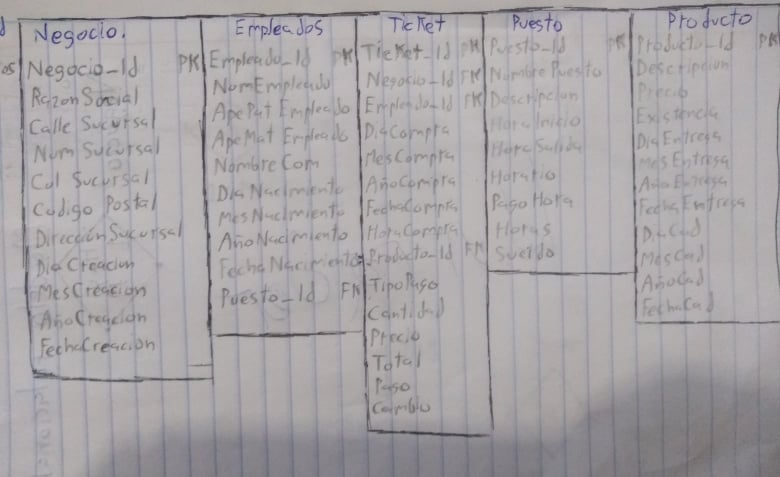 Negocio.
Negocio_Id PK
RazonSocial
Calle Sucursal
Num Sucursal
Col Sucursal
Codigo Postal
DirecciónSucursal
DiaCreacion
MesCreacion
AñoCreacion
FechaCreacion
Empleados
Empleado_Id PK
NomEmpleado
ApePat Empleado
ApeMat Empleado
NombreCom
DiaNacimiento
MesNacimiento
AñoNacimiento
FechaNacimiento
Puesto_Id FK
Ticket
Ticket_Id PK
Negocio_Id FK
Empleado_Id FK
DiaCompra
MesCompra
AñoCompra
FechaCompra
HoraCompra
Producto_Id FK
TipoPago
Cantidad
Precio
Total
Pago
Cambio
Puesto
Puesto_Id PK
NombrePuesto
Descripcion
HoraInicio
HoraSalida
Horario
PagoHora
Horas
Sueldo
Producto
Producto_Id PK
Descripcion
Precio
Existencia
DiaEntrega
MesEntrega
AñoEntrega
FechaEntrega
DiaCad
MesCad
AñoCad
FechaCad